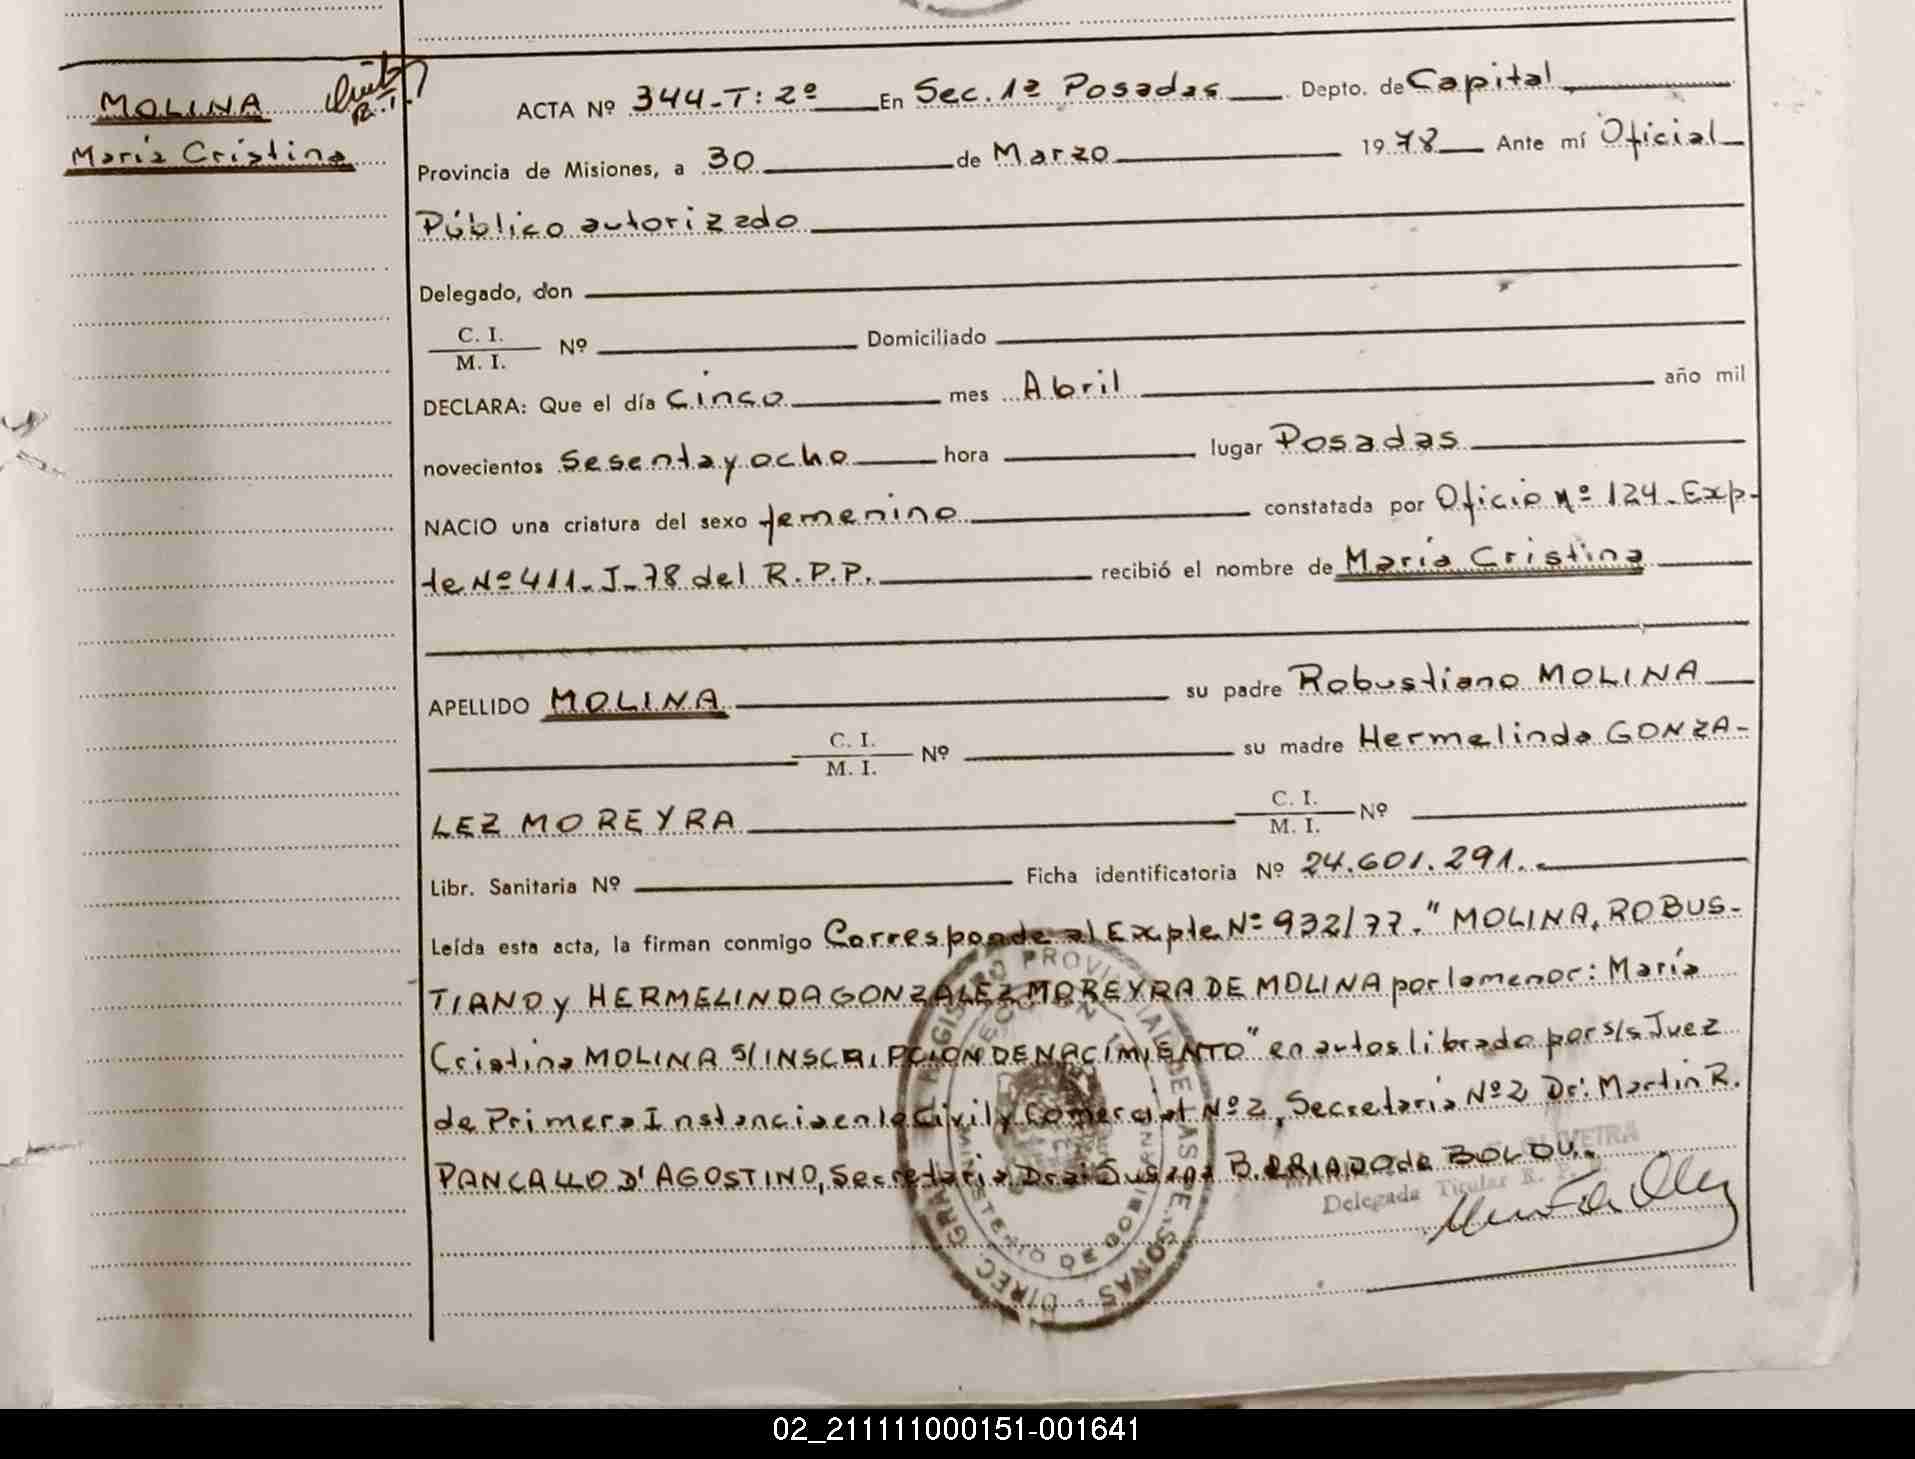 MOLINA
María Cristina
ACTA Nº 344-T: 2º En Sec. 1ª Posadas Depto. de Capital
Provincia de Misiones, a 30 de Marzo 1978 Ante mí Oficial
Público autorizado
Delegado, don
C. I.
M. I. Nº Domiciliado
DECLARA: Que el día cinco mes Abril año mil
novecientos sesenta y ocho hora lugar Posadas
NACIO una criatura del sexo femenino constatada por Oficio nº 124-Exp-
te Nº 411-J-78 del R.P.P. recibió el nombre de María Cristina
APELLIDO MOLINA su padre Robustiano MOLINA
C. I.
M. I. Nº su madre Hermelinda GONZA-
LEZ MOREYRA C. I.
M. I. Nº
Libr. Sanitaria Nº Ficha identificatoria Nº 24.601.291.-
Leída esta acta, la firman conmigo Corresponde al Expte Nº 932/77. "MOLINA, ROBUS-
TIANO y HERMELINDA GONZALEZ MOREYRA DE MOLINA por la menor: María
Cristina MOLINA S/INSCRIPCION DE NACIMIENTO" en autos librado por s/s Juez
de Primera Instancia en lo Civil y Comercial Nº 2, Secretaría Nº 2 Dr: Martin R.
PANCALLO D'AGOSTINO, Secretaria Dra: Susana B. CRIADO de BOLOU.
Delegada Titular R. P.
DIREC. GRAL. REGISTRO PROVINCIAL DE LAS PERSONAS
MINISTERIO DE GOBIERNO
02_211111000151-001641